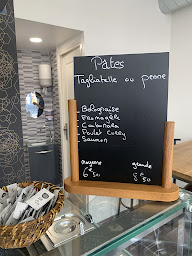 Pâtes
Tagliatelle ou penne
- Bolognaise
- Carbonara
- Poulet curry
- Saumon
moyenne grande
6.50